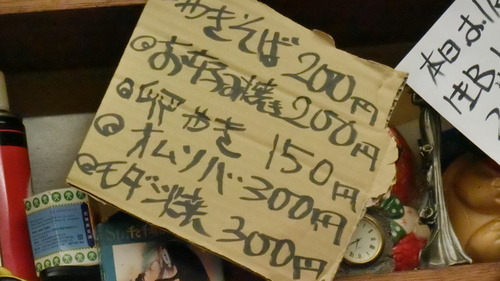 やきそば 200円
◎お好み焼き 200円
◎卵やき 150円
◎オムソバ 300円
◎モダン焼 300円
本日お
生B